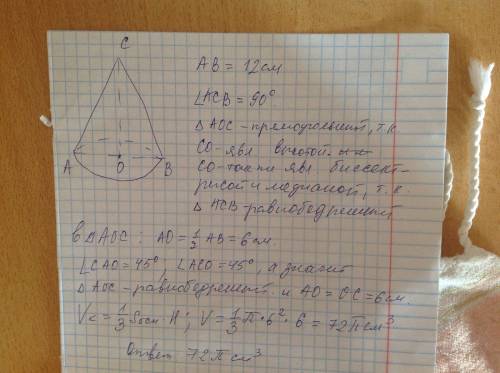 C
A
O
B
AB = 12 см
∠ACB = 90°
△AOC – прямоугольный, т.к
CO – явл высотой.
CO – также явл биссект-
рисой и медианой, т.к.
△ACB – равнобедренный
В △AOC: AO = 1/2 AB = 6 см.
∠CAO = 45°, ∠ACO = 45°, а значит
△AOC – равнобедренный и AO = OC = 6 см.
Vк = 1/3 Sосн · H; V = 1/3 π · 6² · 6 = 72π см³
Ответ 72π см³